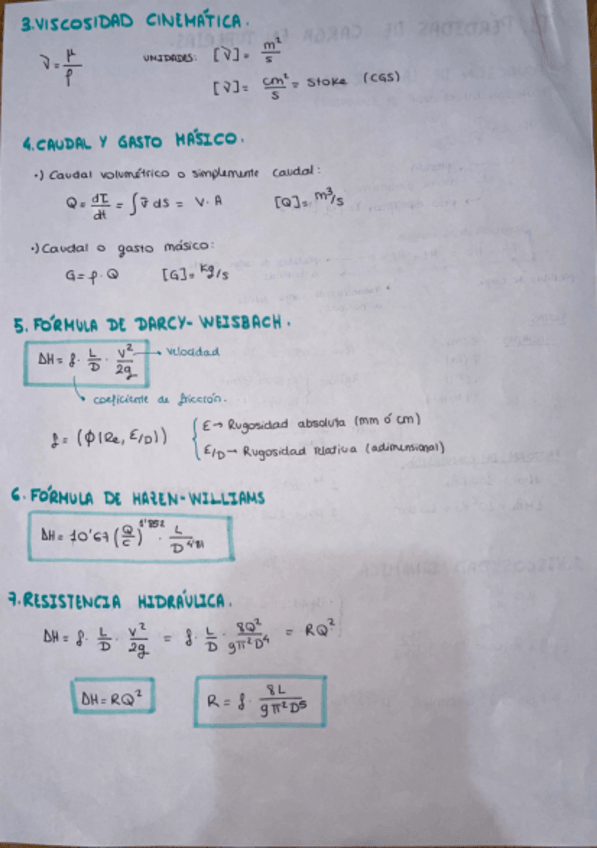 3. VISCOSIDAD CINEMÁTICA.
ν = μ/ρ UNIDADES: [ν] = m²/s
[ν] = cm²/s = Stoke (CGS)
4. CAUDAL Y GASTO MÁSICO.
·) Caudal volumétrico o simplemente caudal:
Q = dI/dt = ∫ v̄ dS = V · A [Q] = m³/s
·) Caudal o gasto másico:
G = ρ · Q [G] = kg/s
5. FÓRMULA DE DARCY-WEISBACH.
ΔH = f · L/D · V²/2g → velocidad
coeficiente de fricción.
f = (φ(Re, ε/D)) { ε → Rugosidad absoluta (mm ó cm)
ε/D → Rugosidad relativa (adimensional)
6. FÓRMULA DE HAZEN-WILLIAMS
ΔH = 10'67 (Q/C)^1'852 · L/D^4'87
7. RESISTENCIA HIDRÁULICA.
ΔH = f · L/D · V²/2g = f · L/D · 8Q²/gπ²D⁴ = RQ²
ΔH = RQ² R = f · 8L/gπ²D⁵